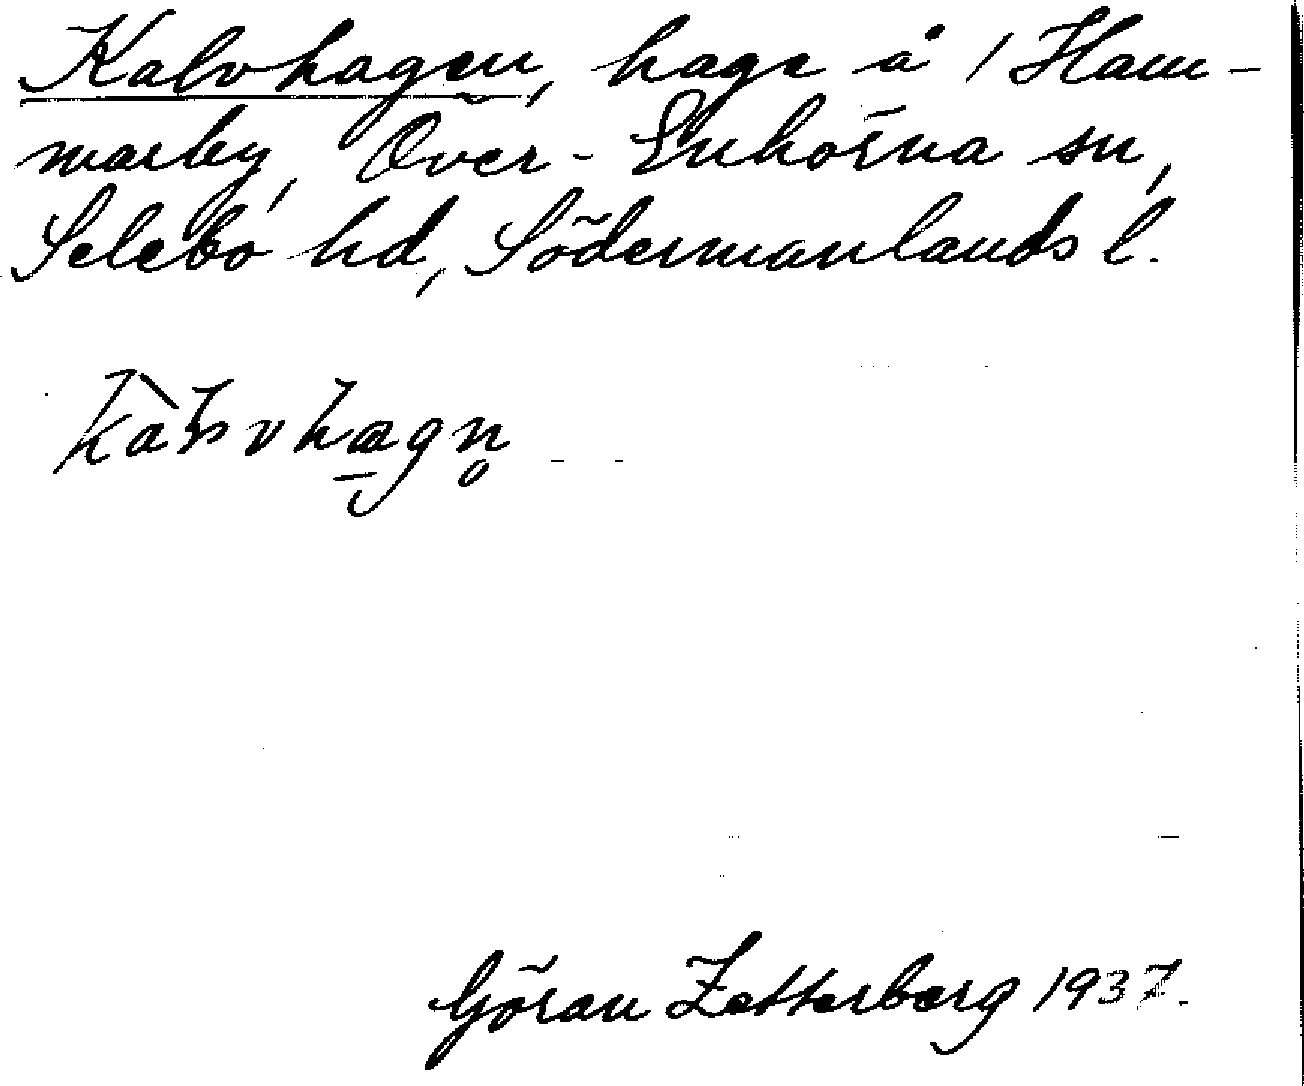 Kalvhagen, hage å 1 Ham-
marby, Över-Enhörna sn,
Selebo hd, Södermanlands l.
kàlvhagn̥
Göran Zetterberg 1937.